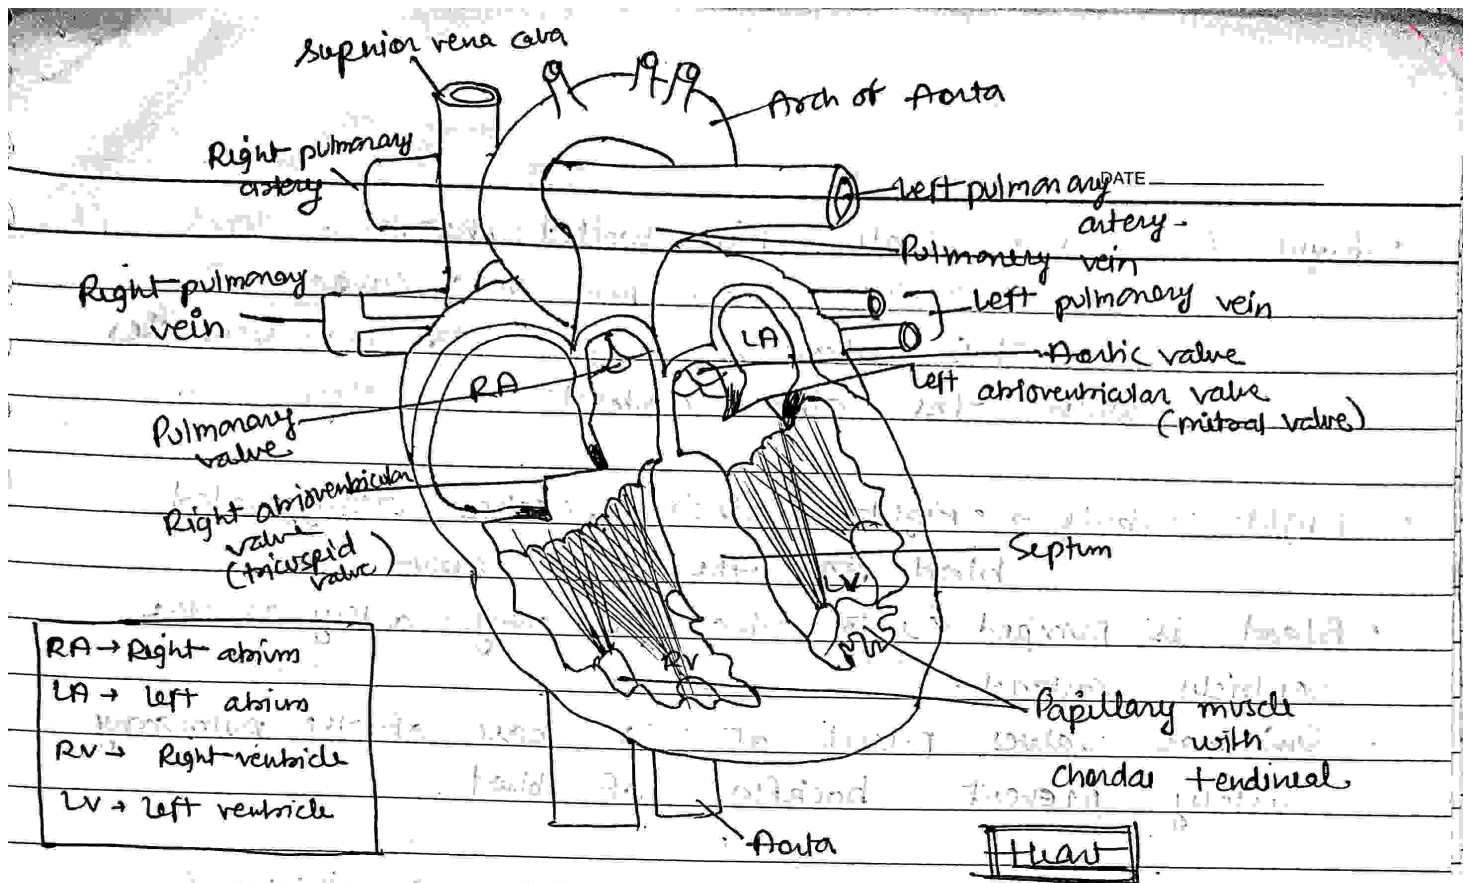 Superior vena cava
Arch of Aorta
Right pulmonary
artery
DATE
Left pulmonary
artery.
Pulmonary vein
Right pulmonary
vein
Left pulmonary vein
LA
Aortic valve
RA
Left
atrioventricular valve
(mitral valve)
Pulmonary
valve
Right atrioventricular
valve
(tricuspid
valve)
Septum
LV
RV
RA → Right atrium
LA → Left atrium
RV → Right ventricle
LV → Left ventricle
Papillary muscle
with
Chordae tendineal
Aorta
Heart